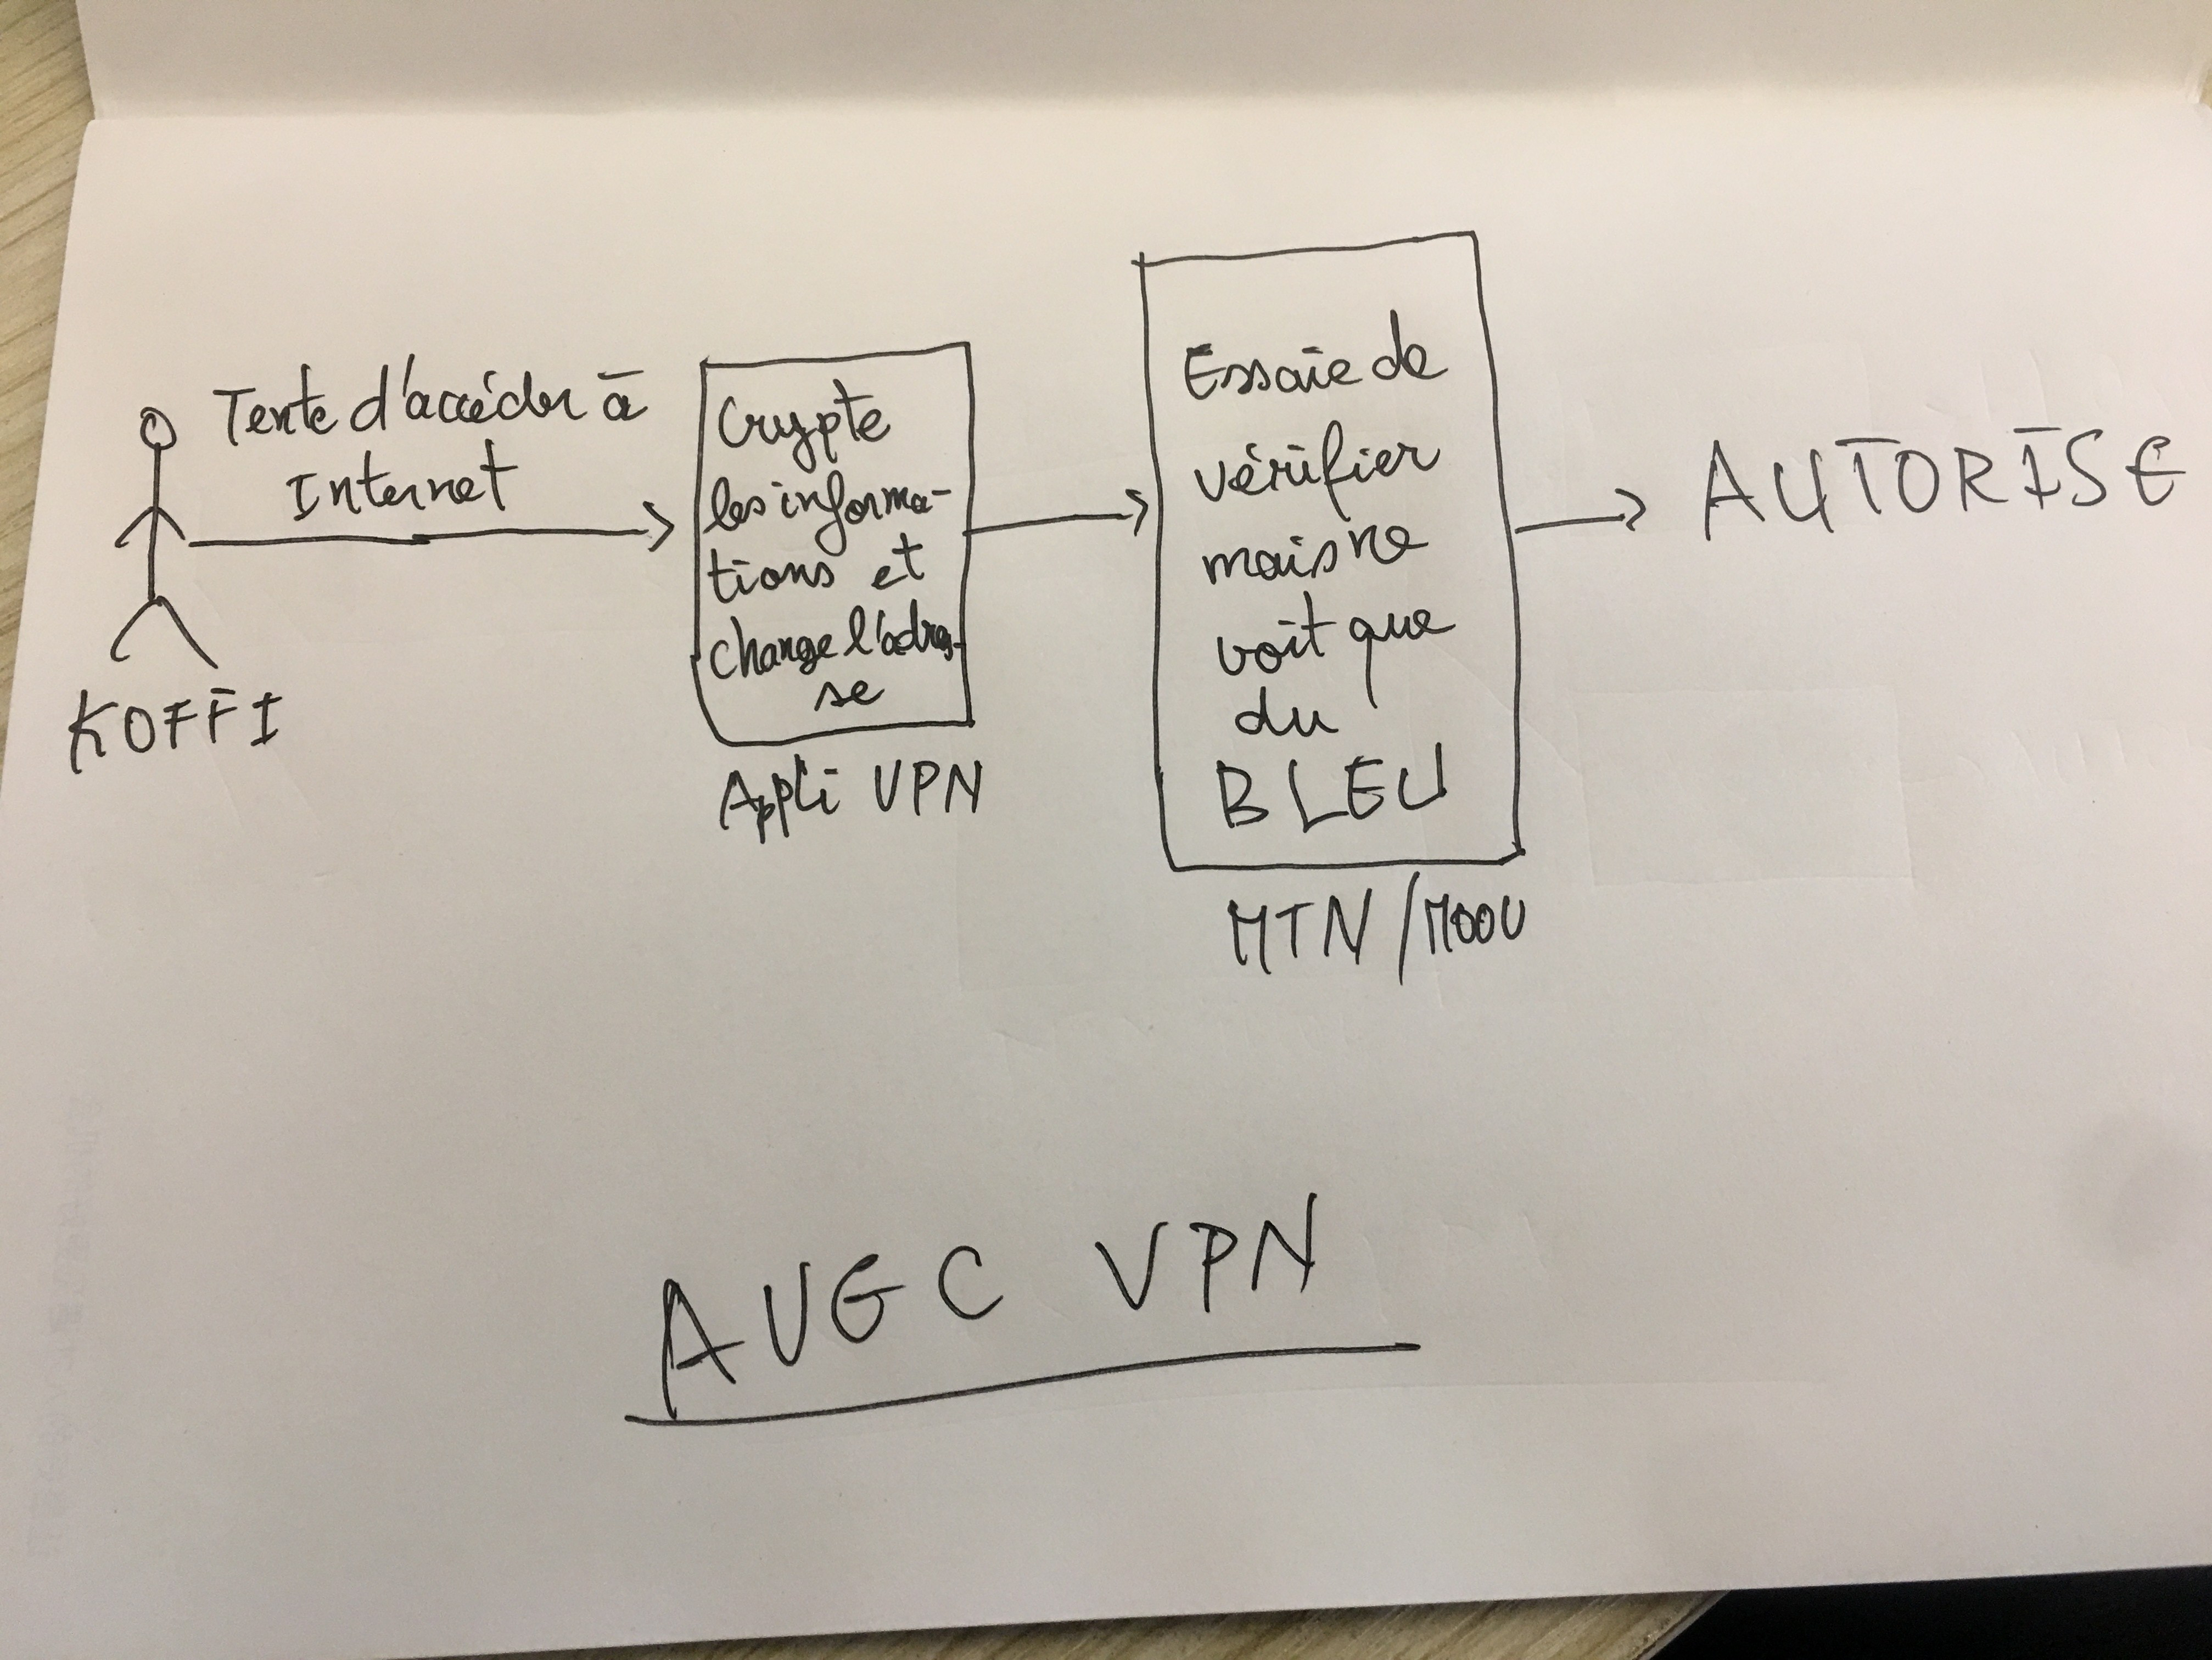 Tente d'accéder à
Internet
KOFFI
Crypte
les informa-
tions et
change l'adres-
se
Appli VPN
Essaie de
vérifier
mais ne
voit que
du
BLEU
MTN/MOOV
AUTORISE
AVEC VPN